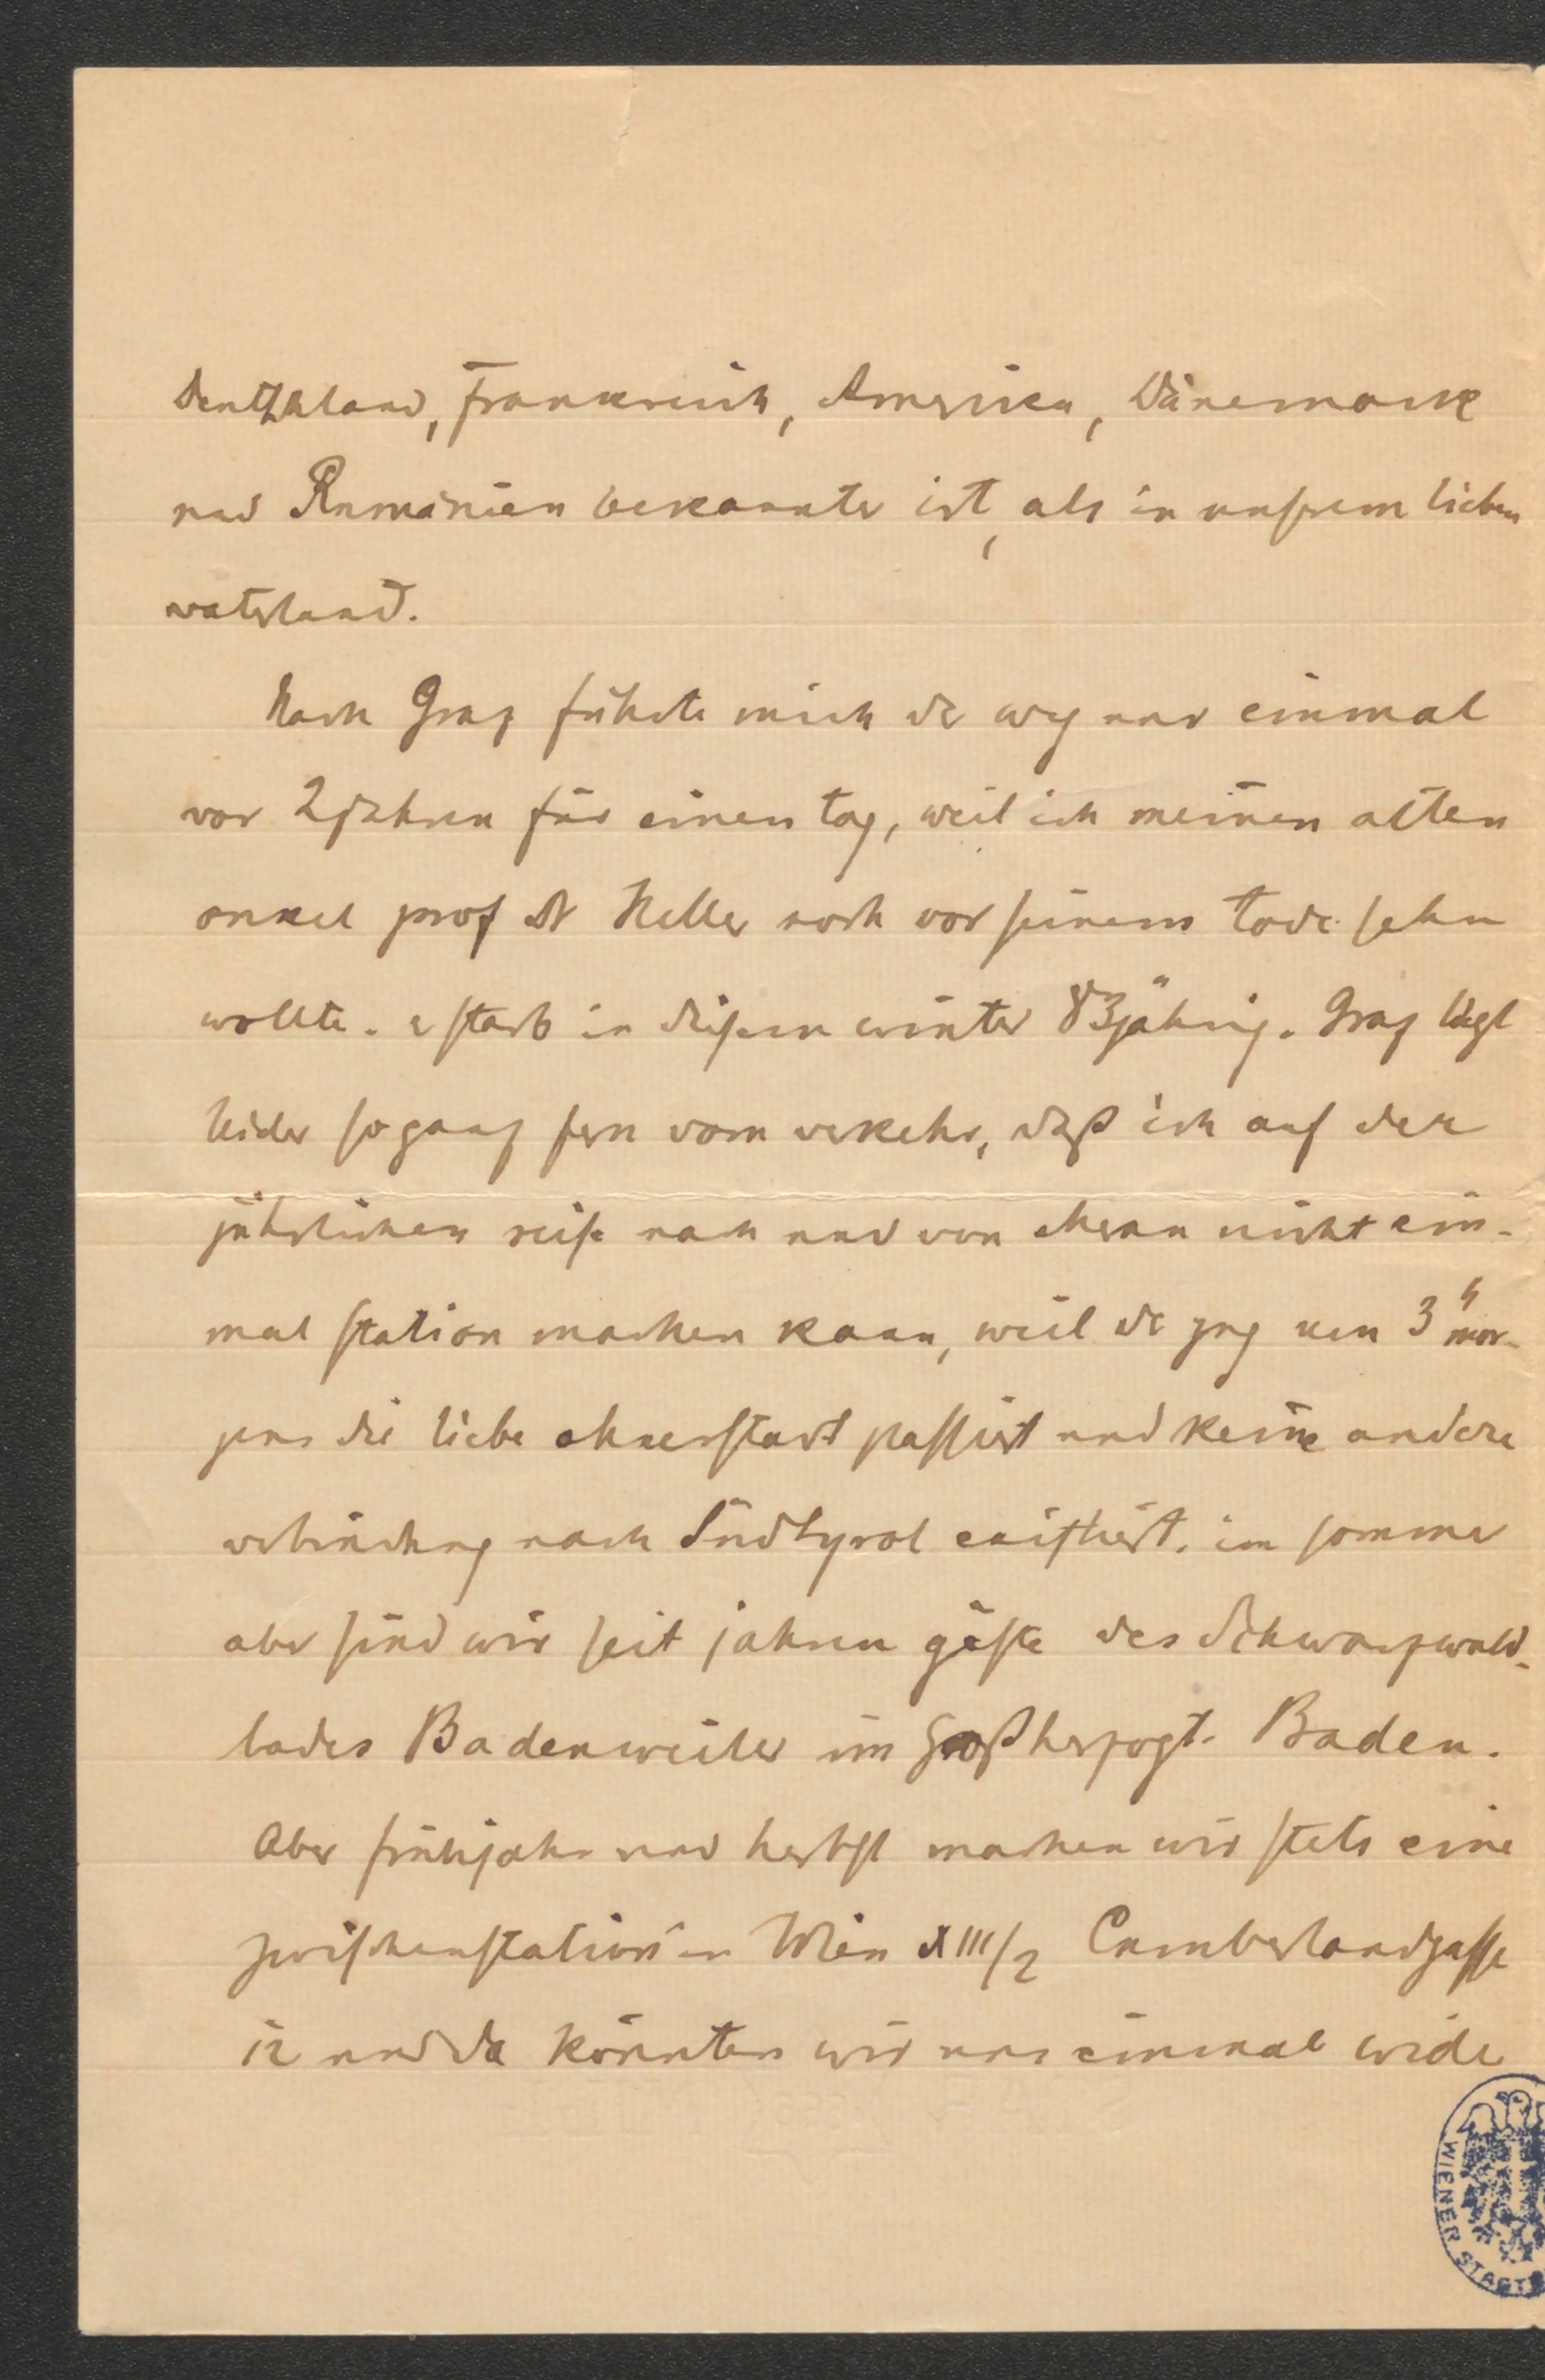 Deutschland, Frankreich, Amerika, Dänemark
und Rumänien bekannter ist, als in unsrem lieben
vaterland.
Nach Graz führte mich der weg nur einmal
vor 2 jahren für einen tag, weil ich meinen alten
onkel prof Dr Heller noch vor seinem tode sehn
wollte. er starb in disem winter 83jährig. Graz ligt
leider so ganz fern vom verkehr, daß ich auf der
jährlichen reise nach und von Meran nicht ein-
mal station machen kann, weil der zug um 3h mor-
gens die liebe Murstadt passiert und keine andere
verbindung nach Südtyrol existiert. im sommer
aber sind wir seit jahren gäste des Schwarzwald-
bades Badenweiler im Großherzogt. Baden.
Aber frühjahr und herbst machen wir stets eine
zwischenstation in Wien XIII/2 Cumberlandgasse
12 und da könnten wir uns einmal wider
WIENER STADT